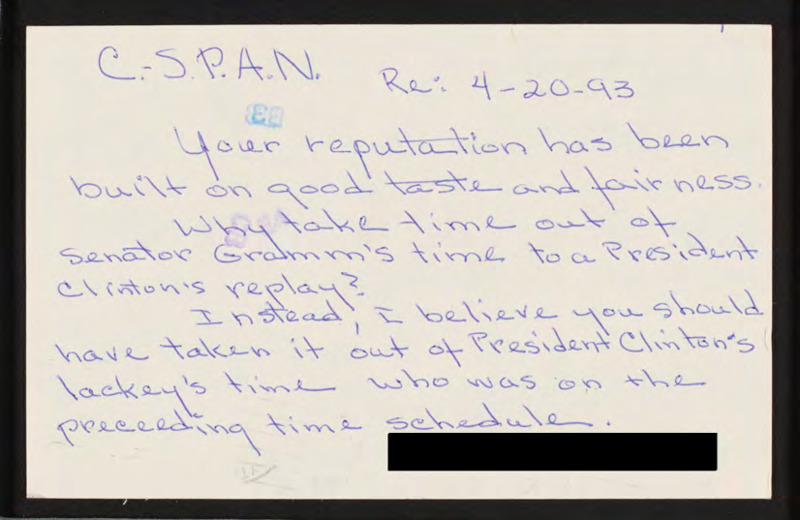 C.-S.P.A.N. Re: 4-20-93
Your reputation has been
built on good taste and fairness.
Why take time out of
Senator Gramm's time to a President
Clinton's replay?
Instead, I believe you should
have taken it out of President Clinton's
lackey's time who was on the
preceeding time schedule.